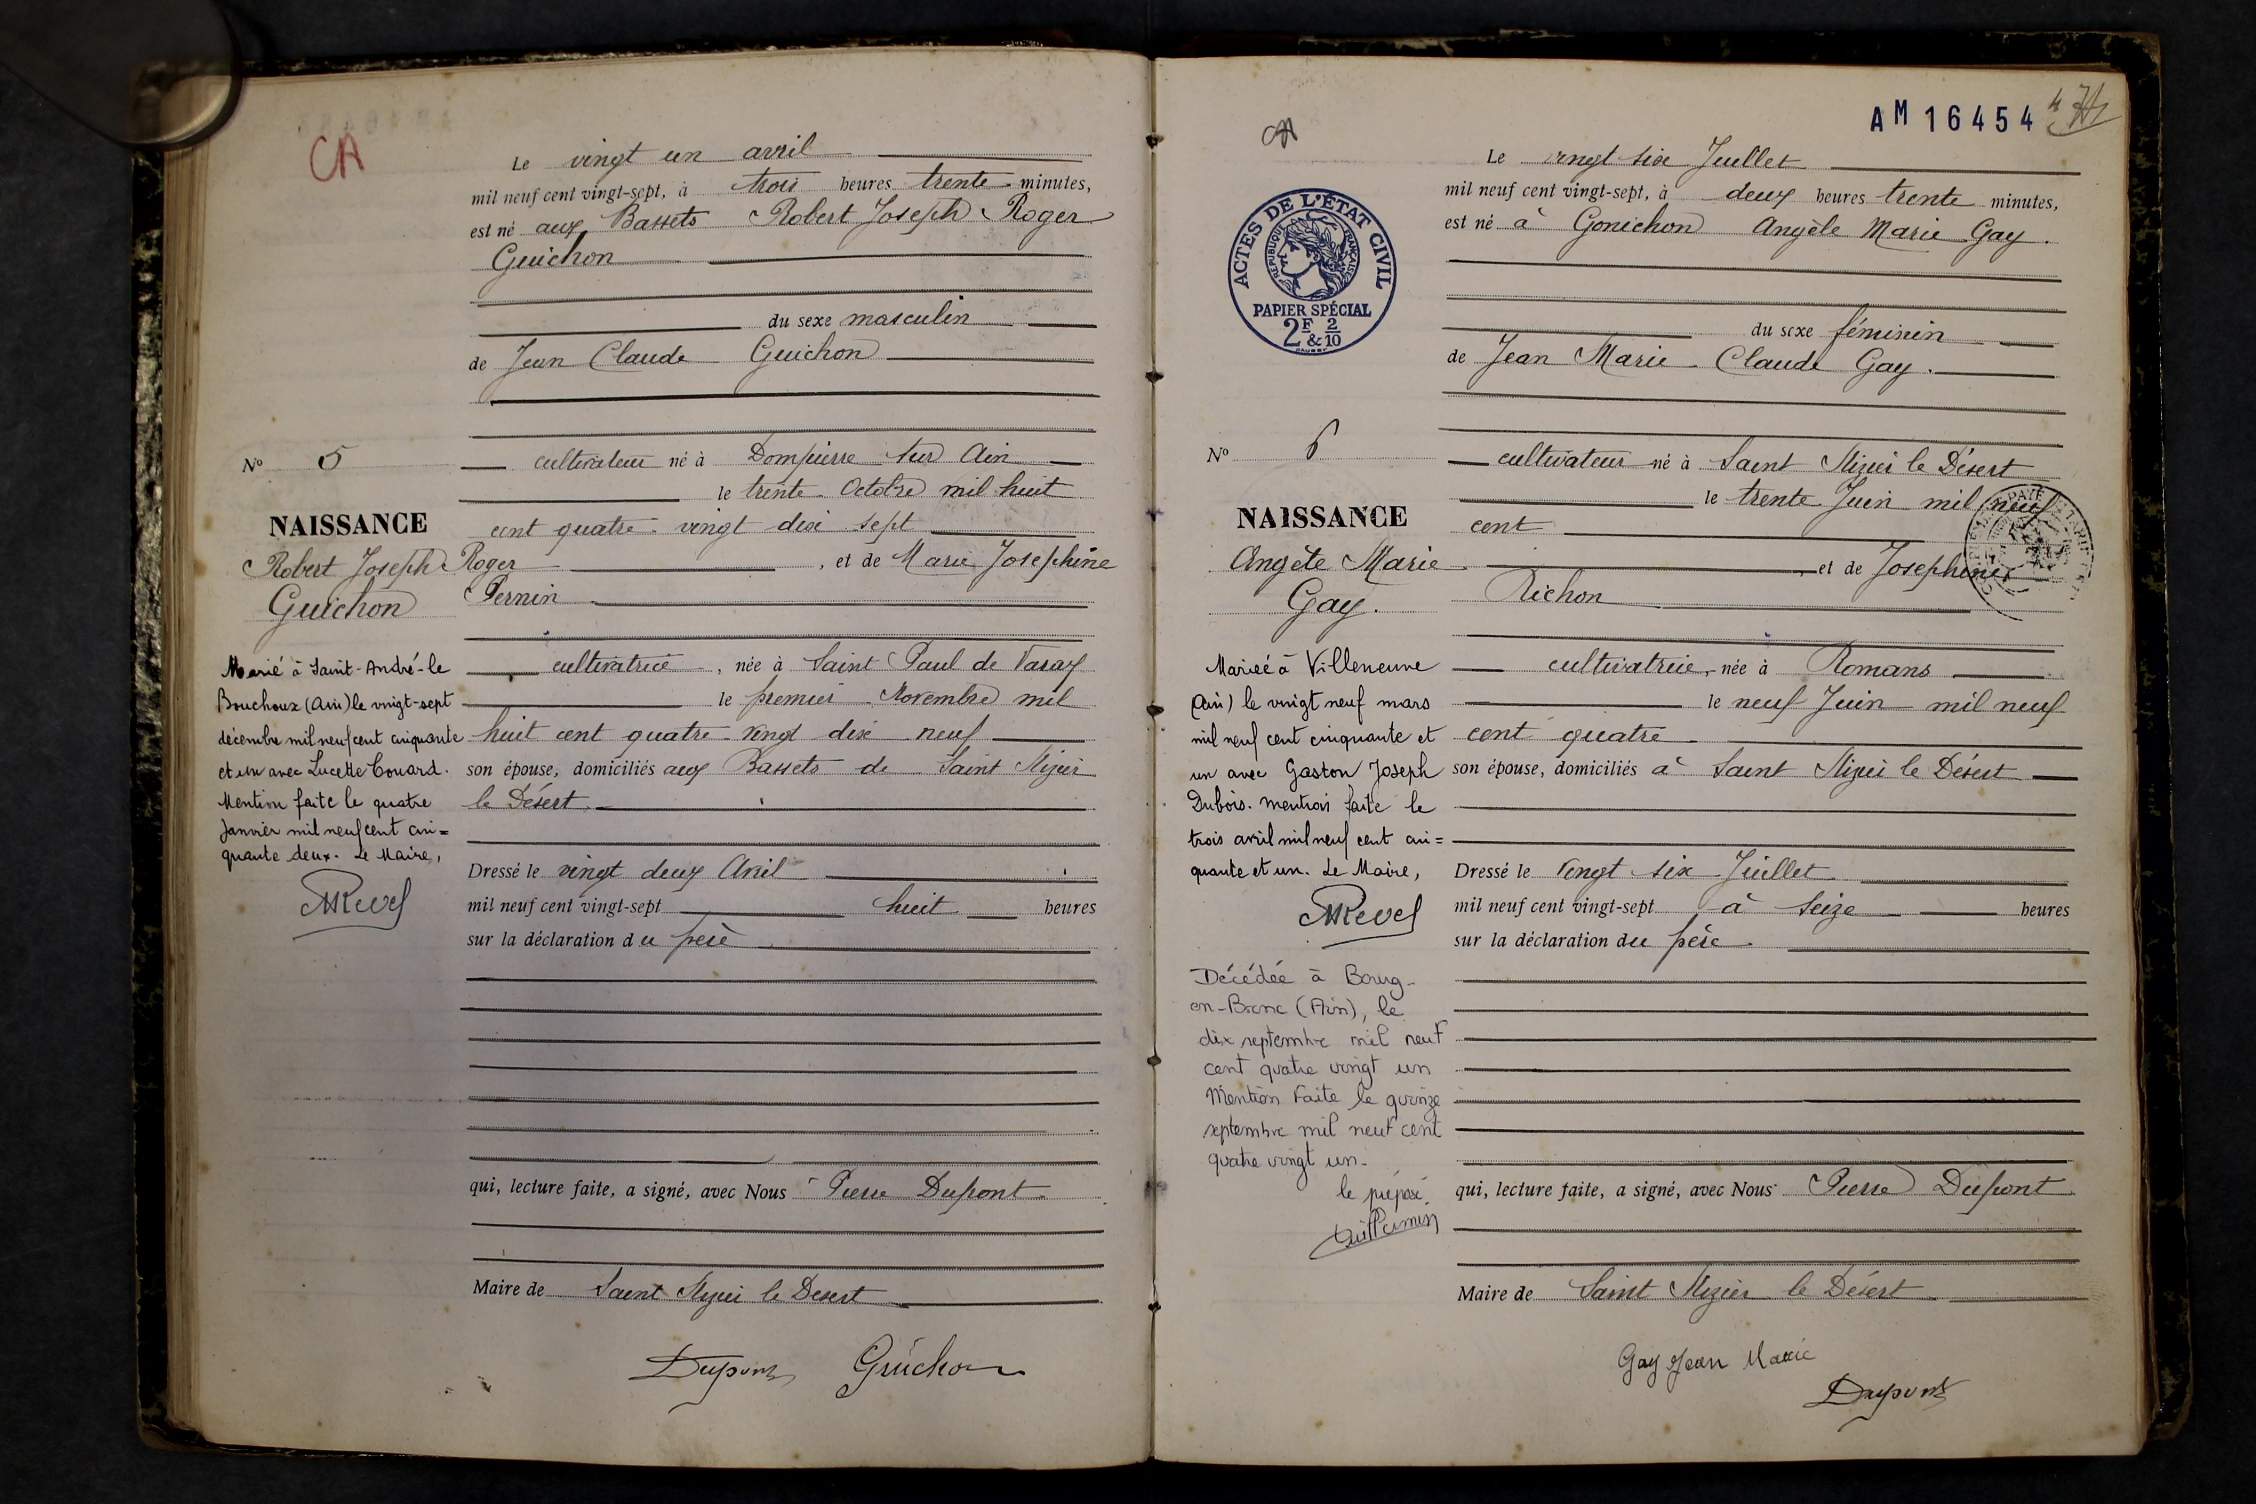 CA
Le vingt un avril
mil neuf cent vingt-sept, à trois heures trente minutes,
est né aux Bassets Robert Joseph Roger
Guichon
du sexe masculin
de Jean Claude Guichon
N° 5
cultivateur né à Dompierre sur Ain
le trente Octobre mil huit
cent quatre-vingt dix sept
NAISSANCE
Robert Joseph Roger
Guichon
, et de Marie Josephine
Pernin
cultivatrice, née à Saint Paul de Varax
le premier Novembre mil
huit cent quatre-vingt dix neuf
son épouse, domiciliés aux Bassets de Saint Nizier
le Désert
Marié à Saint-André-le
Bouchoux (Ain) le vingt-sept
décembre mil neuf cent cinquante
et un avec Lucette Couard.
Mention faite le quatre
Janvier mil neuf cent cin=
quante deux. Le Maire,
MRevel
Dressé le vingt deux Avril
mil neuf cent vingt-sept huit heures
sur la déclaration du père
qui, lecture faite, a signé, avec Nous Pierre Dupont
Maire de Saint Nizier le Desert
Dupont Guichon
CA
AM 16454
4
ACTES DE L'ÉTAT CIVIL
RÉPUBLIQUE FRANÇAISE
PAPIER SPÉCIAL
2F & 2/10
Le vingt six Juillet
mil neuf cent vingt-sept, à deux heures trente minutes,
est né à Gonichon Angèle Marie Gay.
du sexe féminin
de Jean Marie Claude Gay.
N° 6
cultivateur né à Saint Nizier le Désert
le trente Juin mil neuf
cent
NAISSANCE
Angèle Marie
Gay.
, et de Josephine
Richon
cultivatrice, née à Romans
le neuf Juin mil neuf
cent quatre
son épouse, domiciliés à Saint Nizier le Désert
Mariée à Villeneuve
(Ain) le vingt neuf mars
mil neuf cent cinquante et
un avec Gaston Joseph
Dubois. Mention faite le
trois avril mil neuf cent cin=
quante et un. Le Maire,
MRevel
Décédée à Bourg-
en-Bresse (Ain), le
dix septembre mil neuf
cent quatre vingt un
Mention faite le quinze
septembre mil neuf cent
quatre vingt un.
le préposé
Dressé le vingt six Juillet
mil neuf cent vingt-sept à seize heures
sur la déclaration du père
qui, lecture faite, a signé, avec Nous Pierre Dupont
Maire de Saint Nizier le Désert
Gay Jean Marie
Dupont